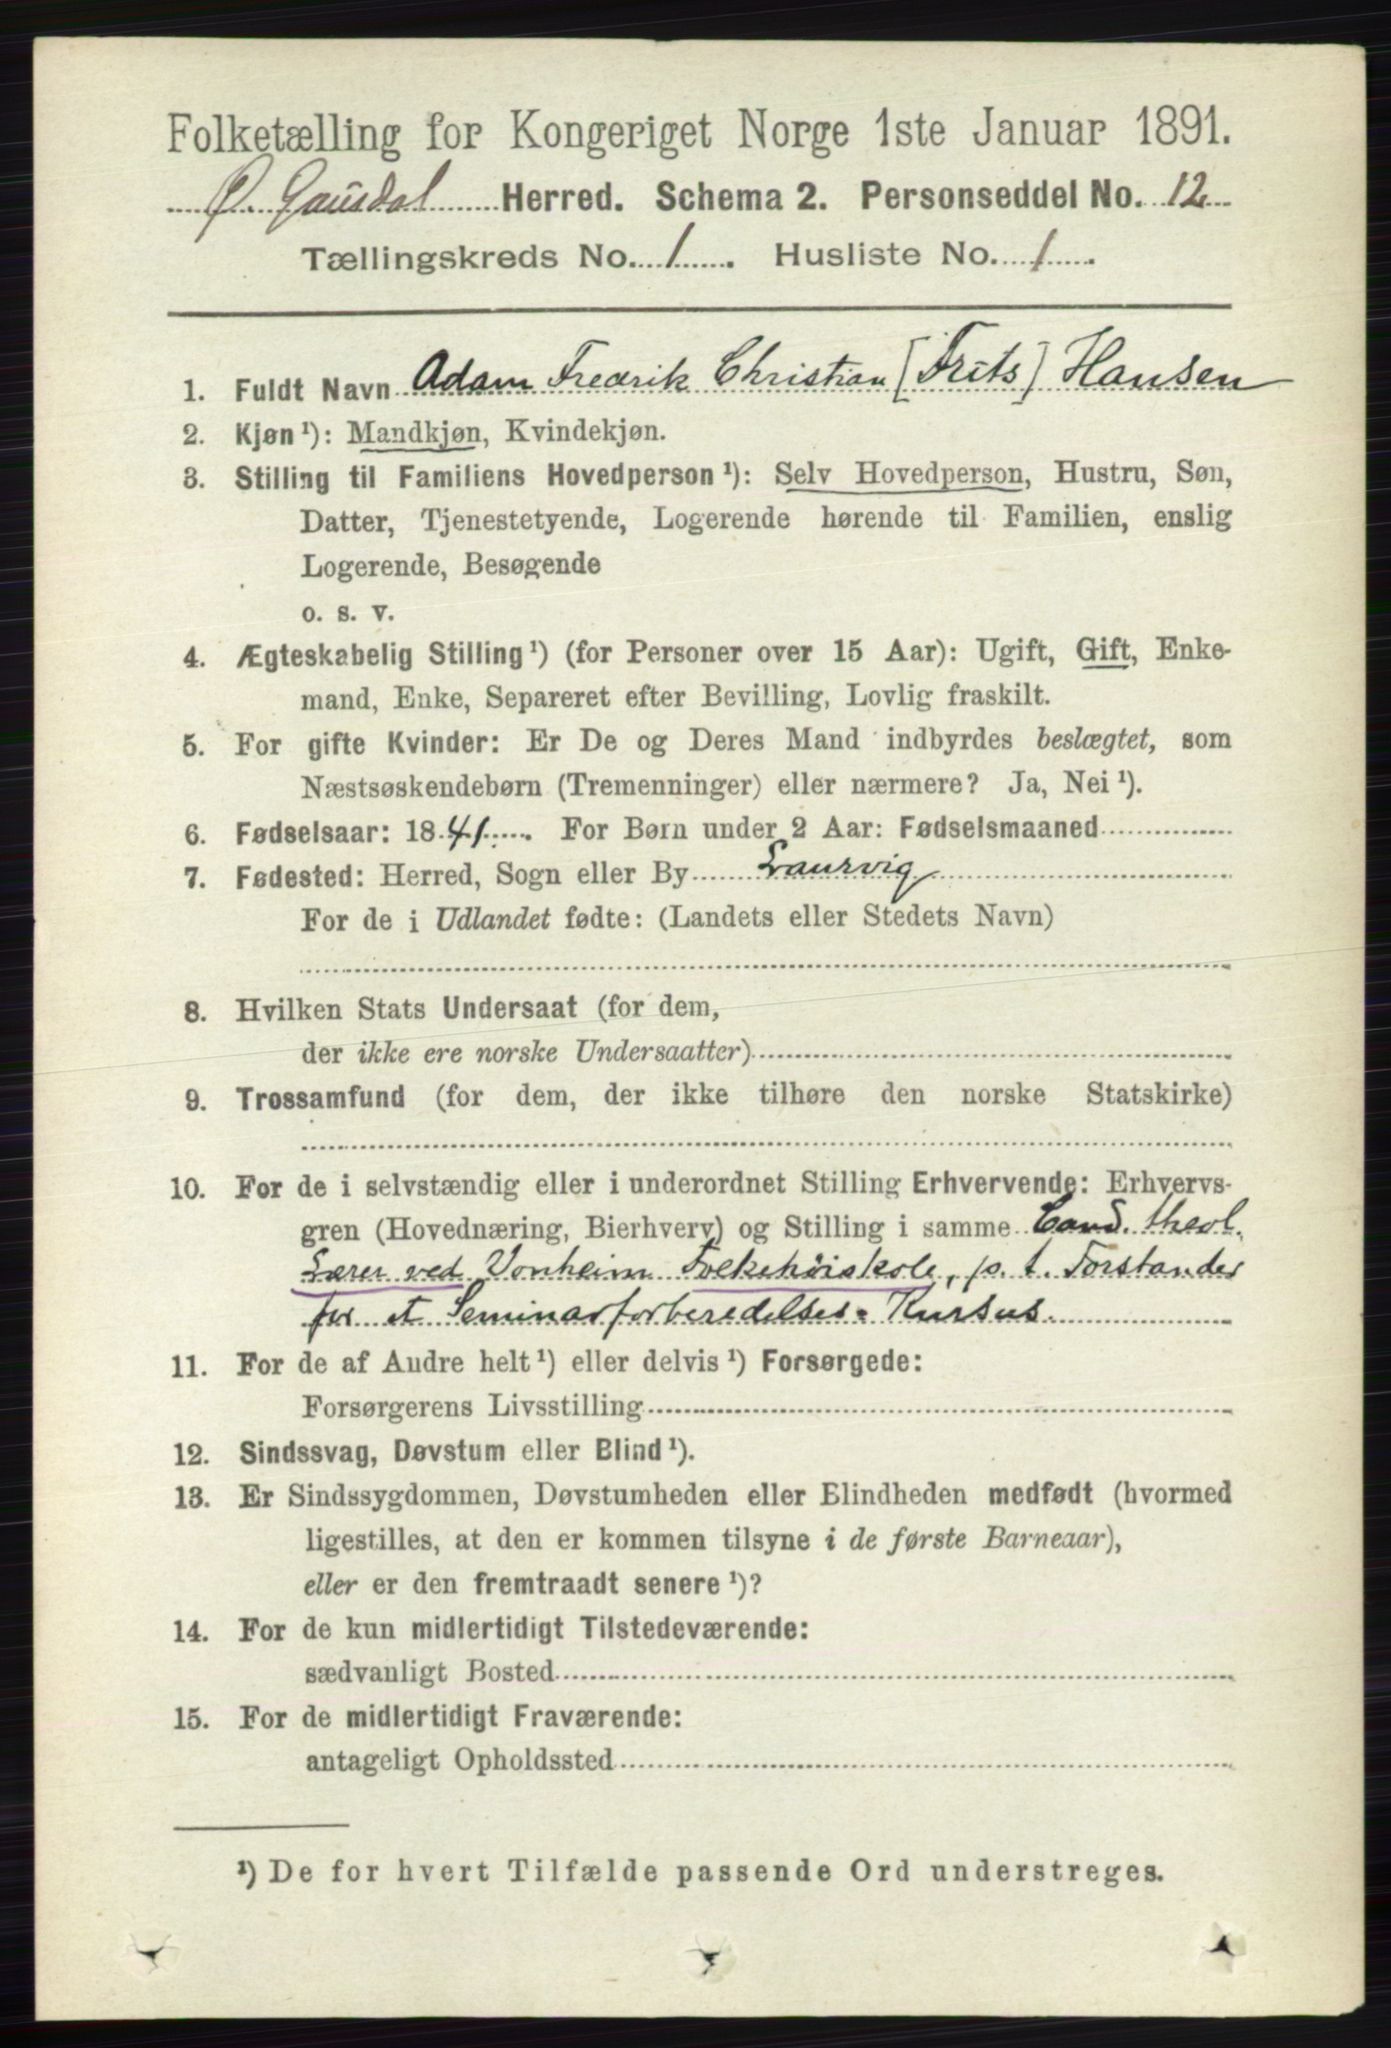 Folketælling for Kongeriget Norge 1ste Januar 1891.
Ø. Gausdal Herred. Schema 2. Personseddel No. 12
Tællingskreds No. 1. Husliste No. 1.
1. Fuldt Navn Adam Fredrik Christian [Frits] Hansen
2. Kjøn¹): Mandkjøn, Kvindekjøn.
3. Stilling til Familiens Hovedperson¹): Selv Hovedperson, Hustru, Søn,
Datter, Tjenestetyende, Logerende hørende til Familien, enslig
Logerende, Besøgende
o. s. v.
4. Ægteskabelig Stilling¹) (for Personer over 15 Aar): Ugift, Gift, Enke-
mand, Enke, Separeret efter Bevilling, Lovlig fraskilt.
5. For gifte Kvinder: Er De og Deres Mand indbyrdes beslægtet, som
Næstsøskendebørn (Tremenninger) eller nærmere? Ja, Nei¹).
6. Fødselsaar: 1841. For Børn under 2 Aar: Fødselsmaaned
7. Fødested: Herred, Sogn eller By Laurvig
For de i Udlandet fødte: (Landets eller Stedets Navn)
8. Hvilken Stats Undersaat (for dem,
der ikke ere norske Undersaatter)
9. Trossamfund (for dem, der ikke tilhøre den norske Statskirke)
10. For de i selvstændig eller i underordnet Stilling Erhvervende: Erhvervs-
gren (Hovednæring, Bierhverv) og Stilling i samme Cand. theol.
Lærer ved Vonheim Folkehøiskole, p. t. Forstander
for et Seminarforberedelses-Kursus.
11. For de af Andre helt¹) eller delvis¹) Forsørgede:
Forsørgerens Livsstilling
12. Sindssvag, Døvstum eller Blind¹).
13. Er Sindssygdommen, Døvstumheden eller Blindheden medfødt (hvormed
ligestilles, at den er kommen tilsyne i de første Barneaar),
eller er den fremtraadt senere¹)?
14. For de kun midlertidigt Tilstedeværende:
sædvanligt Bosted
15. For de midlertidigt Fraværende:
antageligt Opholdssted
¹) De for hvert Tilfælde passende Ord understreges.